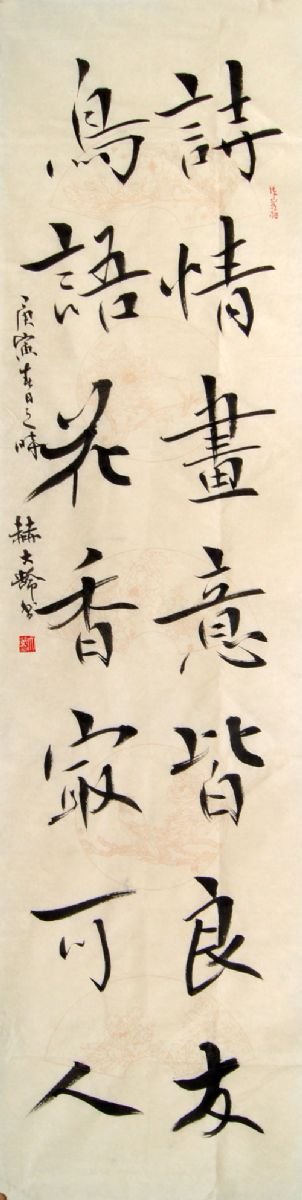 詩情畫意皆良友
鳥語花香寂可人
庚寅春日之時
赫大齡書